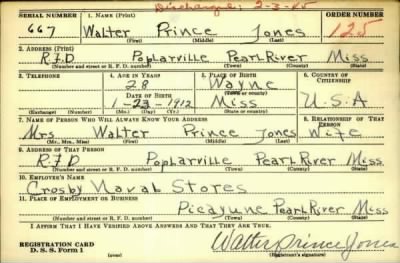 Discharged; 2-3-45
SERIAL NUMBER 1. NAME (Print) ORDER NUMBER
667 Walter Prince Jones 125
(First) (Middle) (Last)
2. ADDRESS (Print)
RFD Poplarville Pearl River Miss
(Number and street or R. F. D. number) (Town) (County) (State)
3. TELEPHONE 4. AGE IN YEARS 5. PLACE OF BIRTH 6. COUNTRY OF CITIZENSHIP
28 Wayne
(Town or county)
DATE OF BIRTH
1-23-1912 Miss U.S.A
(Exchange) (Number) (Mo.) (Day) (Yr.) (State or country)
7. NAME OF PERSON WHO WILL ALWAYS KNOW YOUR ADDRESS 8. RELATIONSHIP OF THAT PERSON
Mrs Walter Prince Jones Wife
(Mr., Mrs., Miss) (First) (Middle) (Last)
9. ADDRESS OF THAT PERSON
RFD Poplarville Pearl River Miss
(Number and street or R. F. D. number) (Town) (County) (State)
10. EMPLOYER'S NAME
Crosby Naval Stores
11. PLACE OF EMPLOYMENT OR BUSINESS
Picayune Pearl River Miss
(Number and street or R. F. D. number) (Town) (County) (State)
I AFFIRM THAT I HAVE VERIFIED ABOVE ANSWERS AND THAT THEY ARE TRUE.
REGISTRATION CARD
D. S. S. Form 1 (over) Walter Prince Jones
(Registrant's signature)